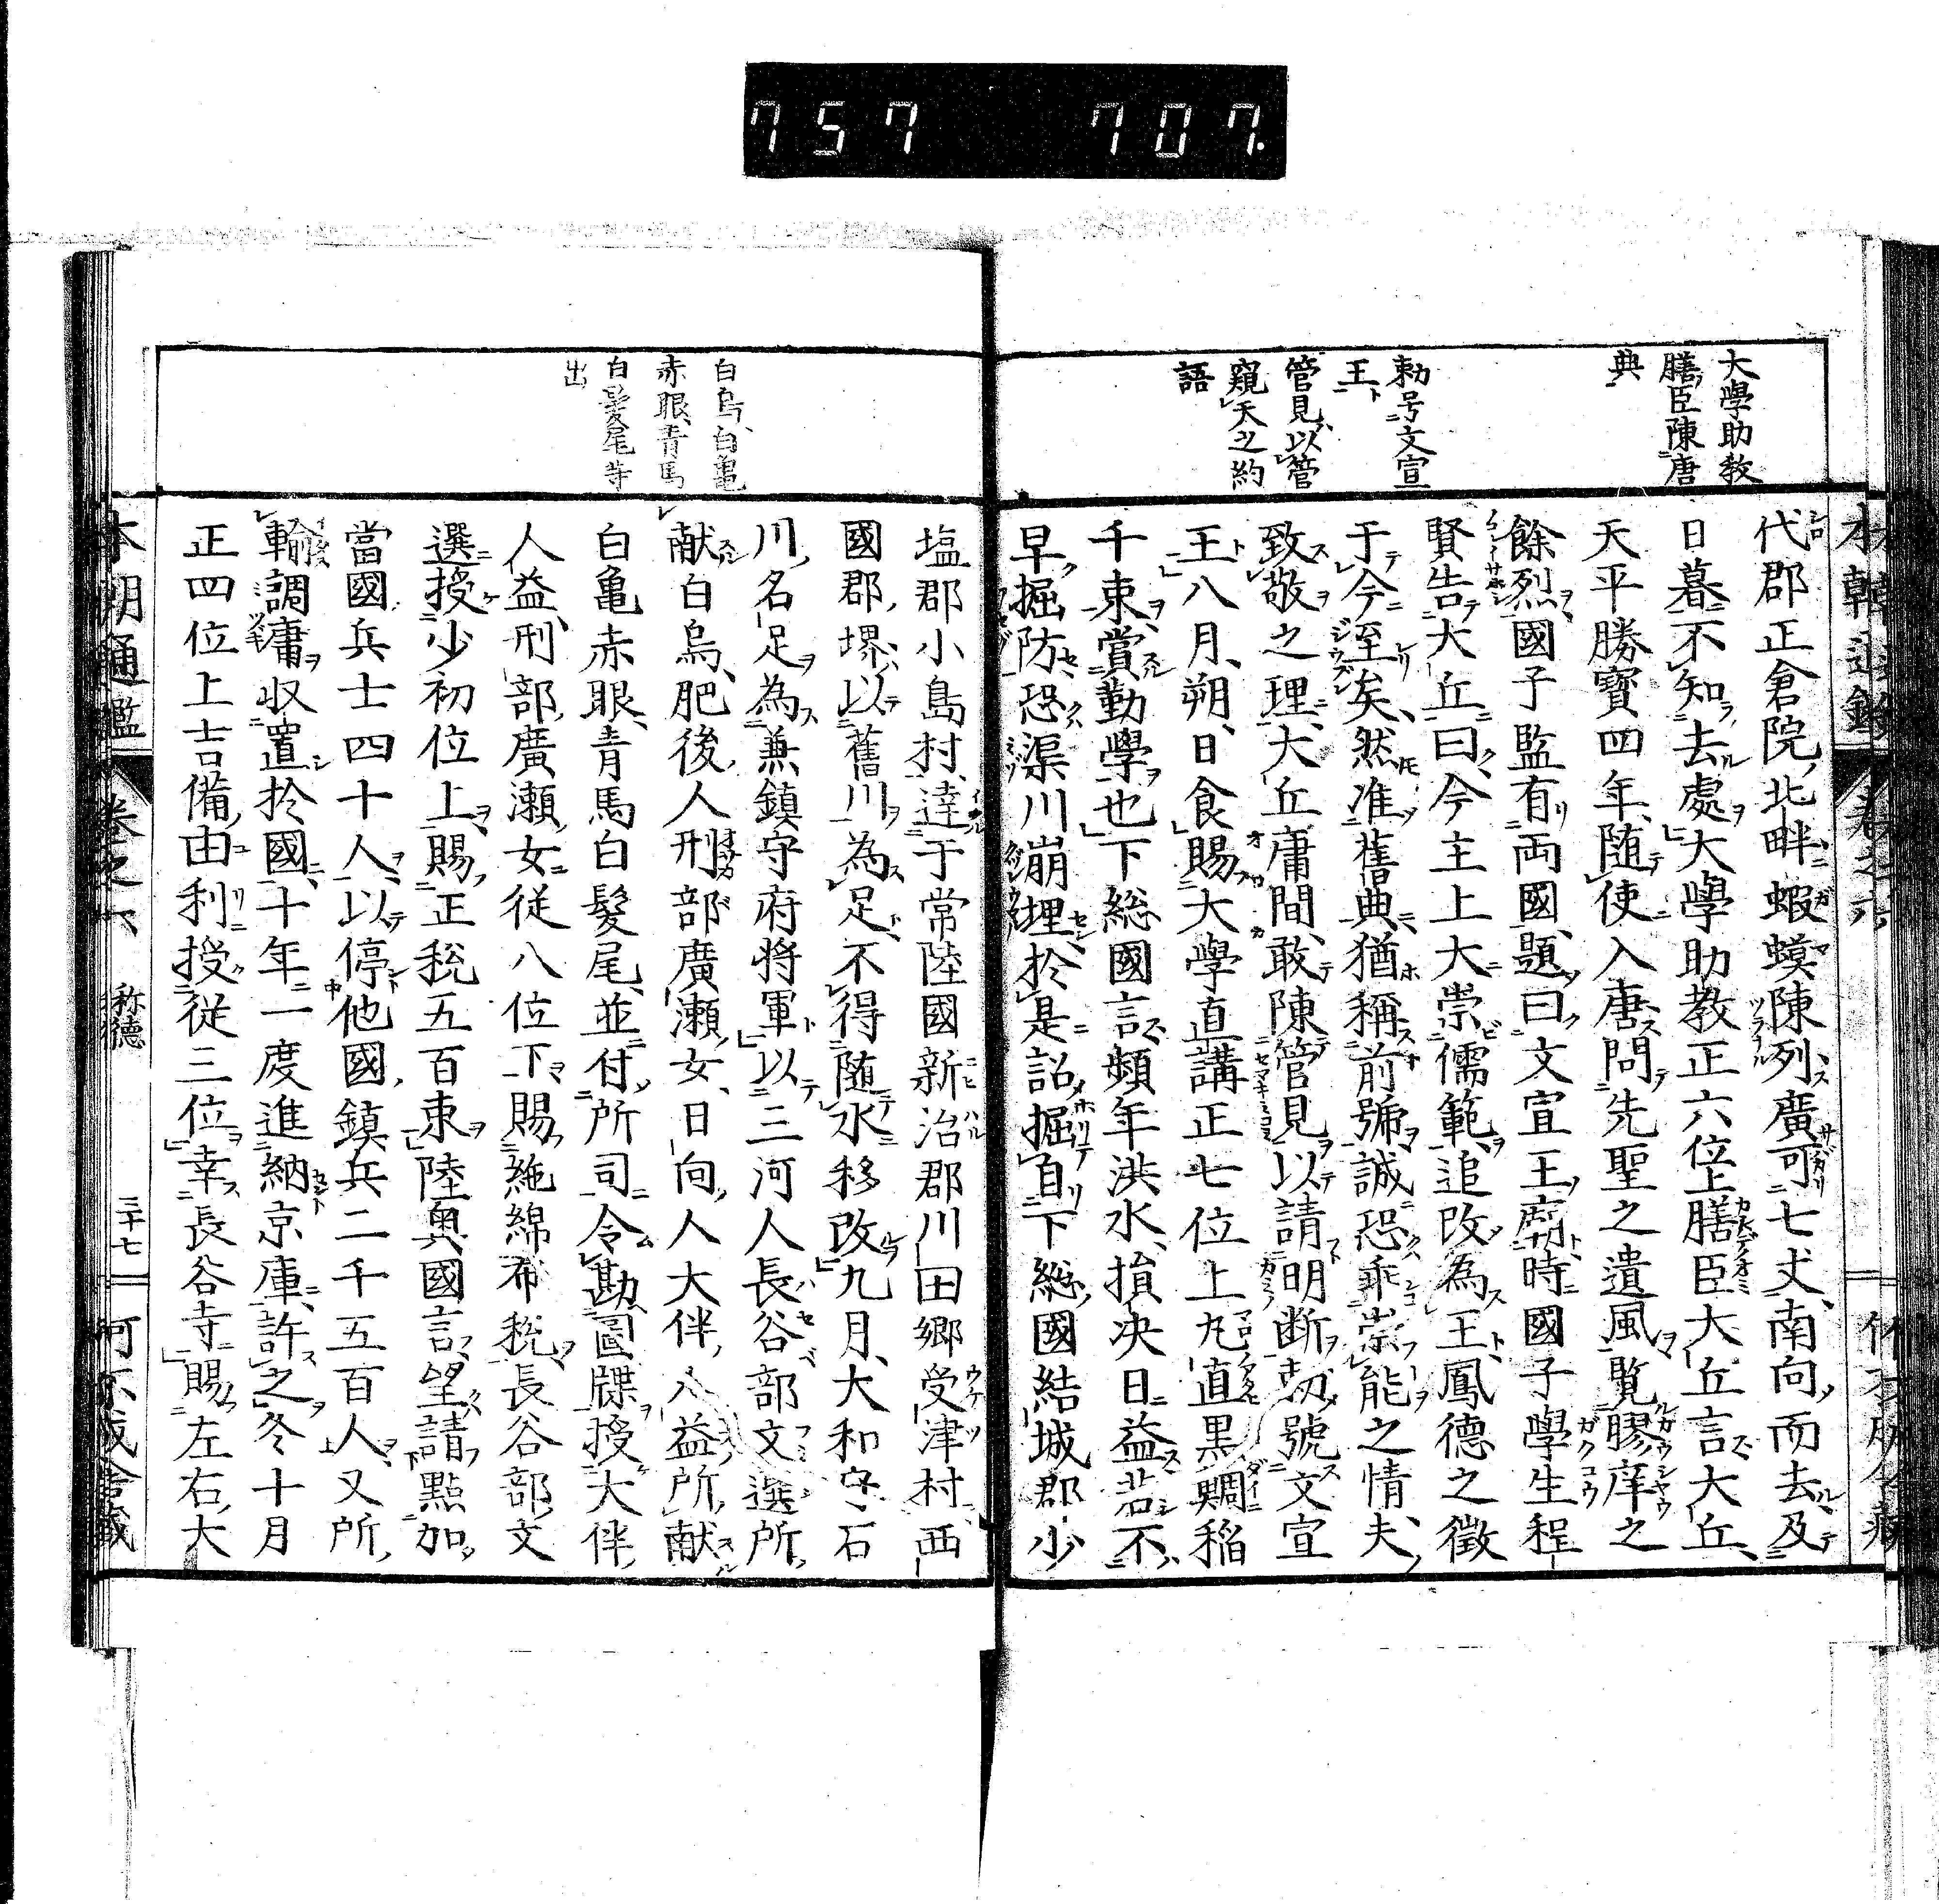 757 707.
大學助教
膳臣陳唐
典
勅号文宣
王
管見以管
窺天之約
語
代郡正倉院北畔蝦蟆陳列廣可七丈南向而去及
日暮不知去處大學助教正六位上膳臣大丘言大丘
天平勝寶四年随使入唐問先聖之遺風覧膠庠之
餘烈國子監有両國題曰文宣王廟時國子學生程
賢告大丘曰今主上大崇儒範追改為王鳳德之徵
于今至矣然准舊典猶稱前號誠恐乖崇能之情夫
致敬之理大丘庸間敢陳管見以請明断勅號文宣
王八月朔日食賜大學直講正七位上九直黒鯛稲
千束賞勤學也下総國言頻年洪水損决日益若不
早掘防恐渠川崩埋於是詔掘自下総國結城郡少
塩郡小島村達于常陸國新治郡川田郷受津村西
國郡堺以舊川為足不得随水移改九月大和守石
川名足為兼鎮守府将軍以三河人長谷部文選所
献白烏肥後人刑部廣瀬女日向人大伴人益所献
白亀赤眼青馬白髪尾並付所司令勘圖牒授大伴
人益刑部廣瀬女従八位下賜絁綿布税長谷部文
選授少初位上賜正税五百束陸奥國言望請點加
當國兵士四十人以停他國鎮兵二千五百人又所
輸調庸収置於國十年一度進納京庫許之冬十月
正四位上吉備由利授従三位幸長谷寺賜左右大
白烏白亀
赤眼青馬
白髪尾等
出
本朝通鑑
卷之六
称德
三十七